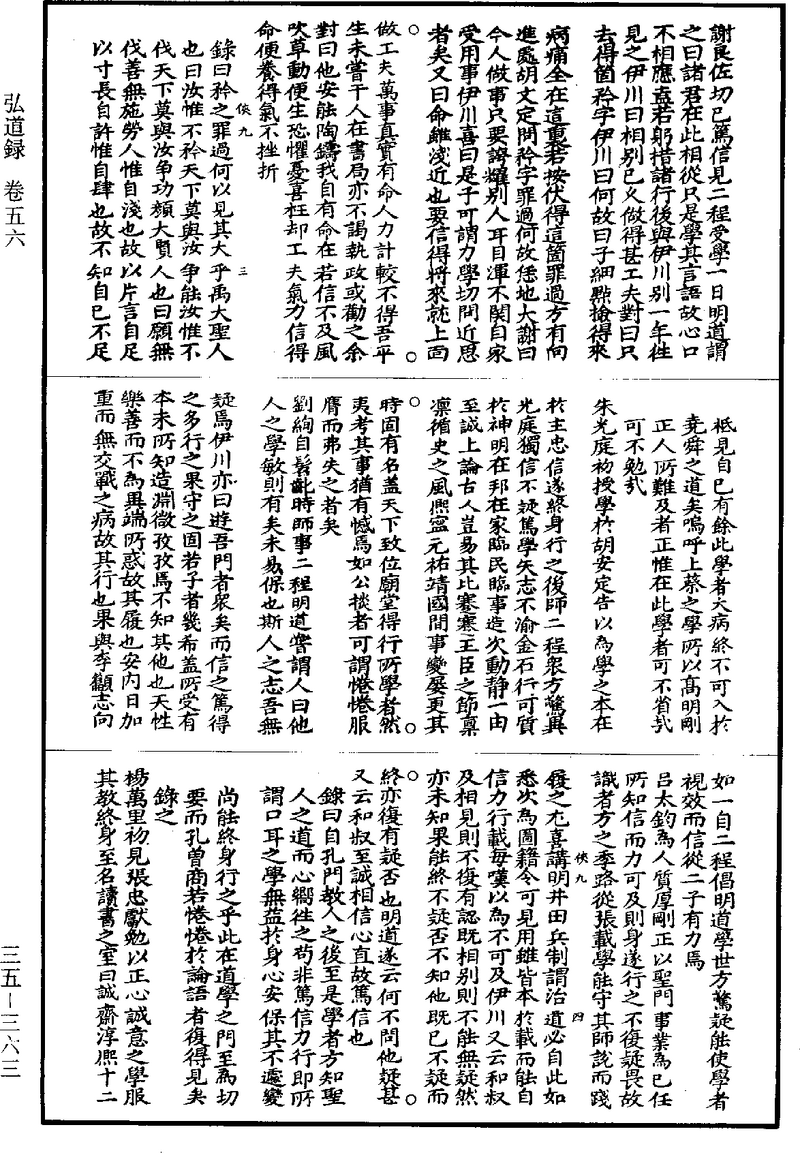 弘道録　卷五六
三五—三六三
謝良佐切己篤信見二程受學一日明道謂
之曰諸君在此相從只是學其言語故心口
不相應盍若躬措諸行後與伊川別一年往
見之伊川曰相別已久做得甚工夫對曰只
去得箇矜字伊川曰何故曰子細點撿得來
病痛全在這裏若按伏得這箇罪過方有向
進處胡文定問矜字罪過何故恁地大謝曰
今人做事只要誇耀別人耳目渾不関自家
受用事伊川喜曰是子可謂力學切問近思
者矣又曰命雖淺近也要信得將來就上面
做工夫萬事真實有命人力計較不得吾平
生未嘗干人在書局亦不謁執政或勸之余
對曰他安能陶鑄我自有命在若信不及風
吹草動便生恐懼憂喜枉却工夫氣力信得
命便養得氣不挫折
錄曰矜之罪過何以見其大乎禹大聖人
俠九　三
也曰汝惟不矜天下莫與汝争能汝惟不
伐天下莫與汝争功顏大賢人也曰願無
伐善無施勞人惟自淺也故以片言自足
以寸長自許惟自肆也故不知自己不足
祗見自己有餘此學者大病終不可入於
堯舜之道矣嗚呼上蔡之學所以高明剛
正人所難及者正惟在此學者可不省哉
可不勉哉
朱光庭初授學於胡安定告以為學之本在
於主忠信遂終身行之後師二程衆方驚異
光庭獨信不疑篤學矢志不渝金石行可質
於神明在邦在家臨民臨事造次動靜一由
至誠上論古人豈易其比蹇蹇王臣之節稟
凛循史之風熙寧元祐靖國間事變屢更其
時固有名盖天下致位廟堂得行所學者然
夷考其事猶有憾焉如公掞者可謂惓惓服
膺而弗失之者矣
劉絢自髫齔時師事二程明道嘗謂人曰他
人之學敏則有矣未易保也斯人之志吾無
疑焉伊川亦曰遊吾門者衆矣而信之篤得
之多行之果守之固若子者幾希盖所受有
本末所知造淵微孜孜焉不知其他也天性
樂善而不為異端所惑故其履也安内日加
重而無交戰之病故其行也果與李籲志向
如一自二程倡明道學世方驚疑能使學者
視效而信從二子有力焉
吕太鈞為人質厚剛正以聖門事業為已任
所知信而力可及則身遂行之不復疑畏故
識者方之季路從張載學能守其師說而踐
俠九　四
履之尤喜講明井田兵制謂治道必自此如
悉次為圖籍令可見用雖皆本於載而能自
信力行載每嘆以為不可及伊川又云和叔
及相見則不復有認既相別則不能無疑然
亦未知果能終不疑否不知他既已不疑而
終亦復有疑否也明道遂云何不問他疑甚
又云和叔至誠相信心直故篤信也
錄曰自孔門教人之後至是學者方知聖
人之道而心嚮往之苟非篤信力行即所
謂口耳之學無益於身心安保其不遷變
尚能終身行之乎此在道學之門至為切
要而孔曽商若惓惓於論語者復得見矣
錄之
楊萬里初見張忠獻勉以正心誠意之學服
其教終身至名讀書之室曰誠齋淳熙十二